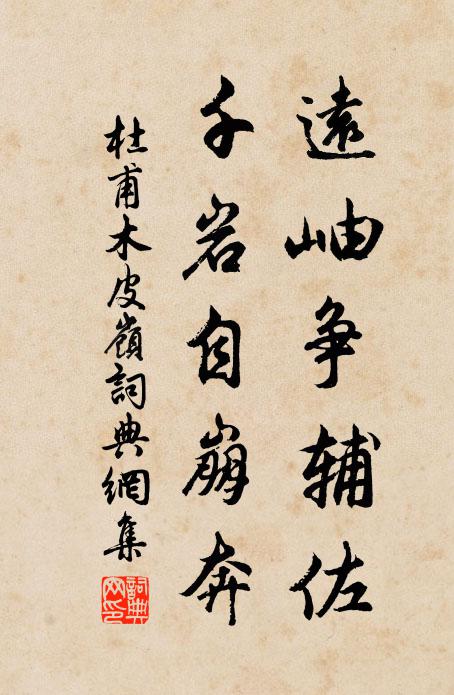 遠岫争辅佐
千岩自崩奔
杜甫木皮嶺詞典網集
詞典网印